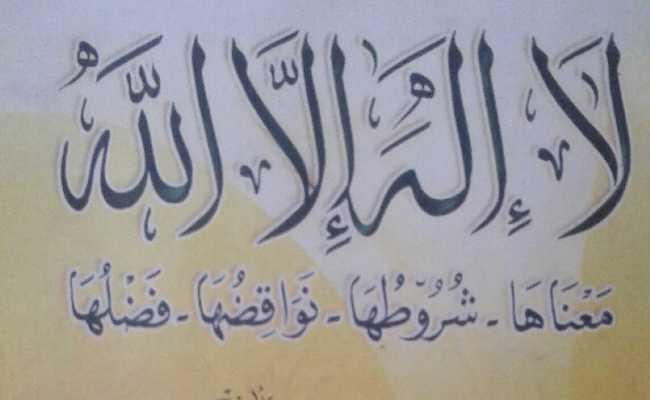 لَا إِلَهَ إِلَّا اللَّهُ
مَعْنَاهَا - شُرُوطُهَا - نَوَاقِضُهَا - فَضْلُهَا